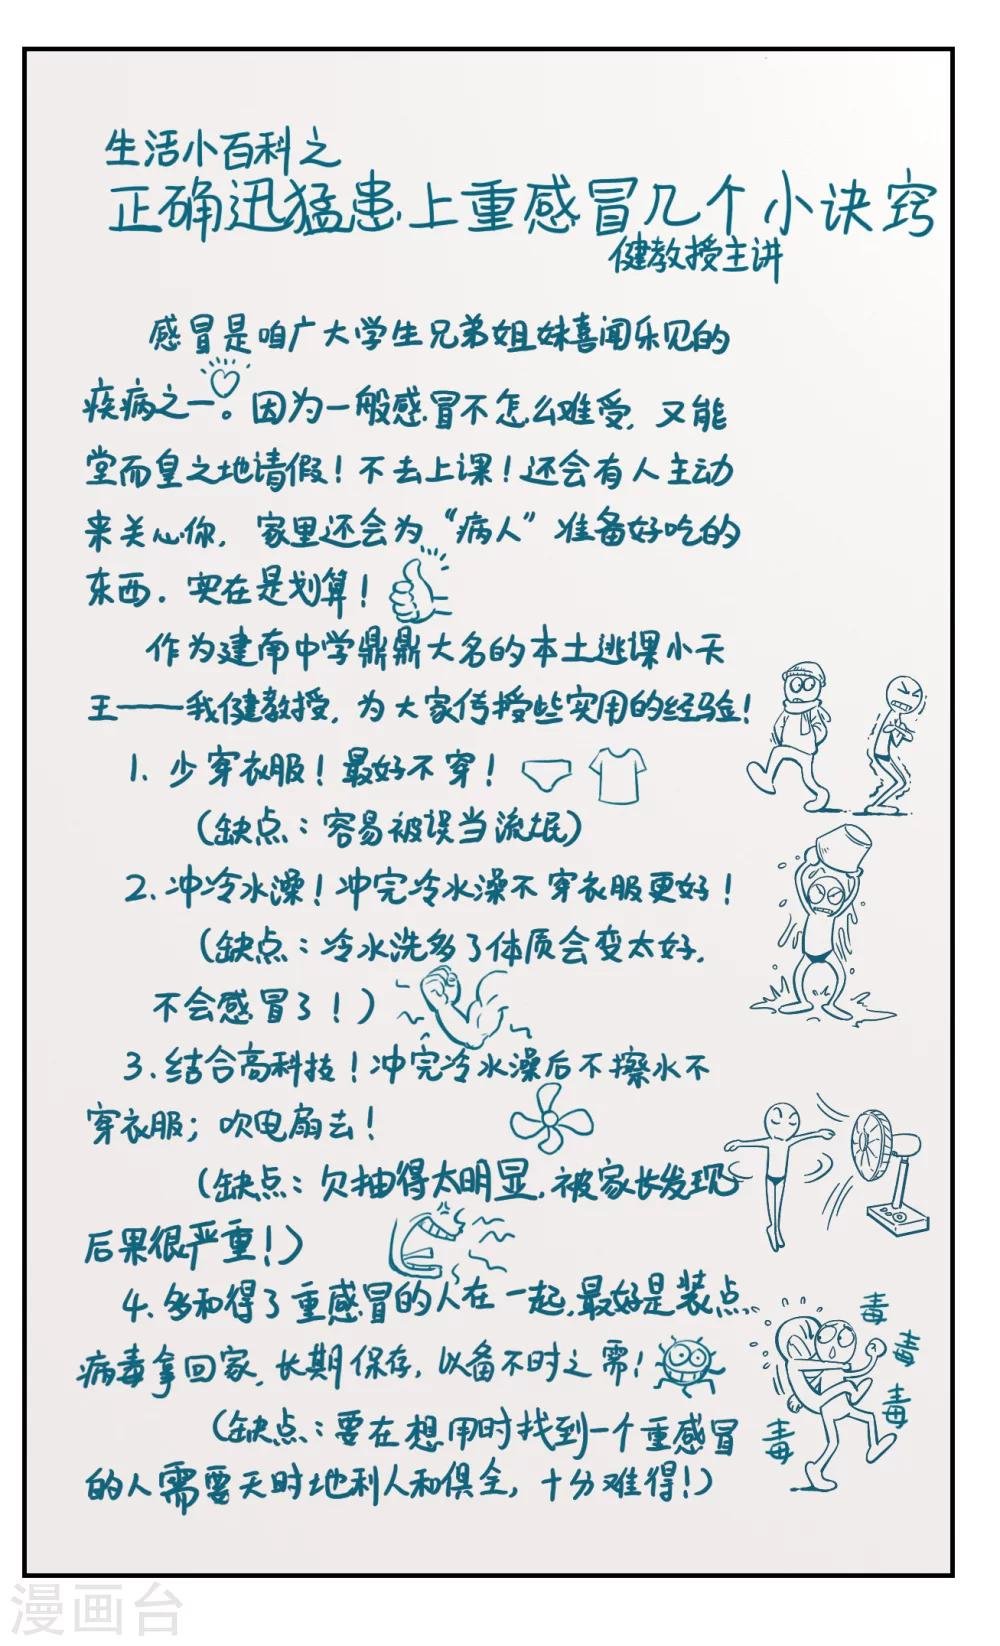 生活小百科之
正确迅猛患上重感冒几个小诀窍
健教授主讲
感冒是咱广大学生兄弟姐妹喜闻乐见的
疾病之一。因为一般感冒不怎么难受，又能
堂而皇之地请假！不去上课！还会有人主动
来关心你，家里还会为“病人”准备好吃的
东西．实在是划算！
作为建南中学鼎鼎大名的本土逃课小天
王——我健教授，为大家传授些实用的经验！
1. 少穿衣服！最好不穿！
（缺点：容易被误当流氓）
2. 冲冷水澡！冲完冷水澡不穿衣服更好！
（缺点：冷水洗多了体质会变太好，
不会感冒了！）
3. 结合高科技！冲完冷水澡后不擦水不
穿衣服；吹电扇去！
（缺点：欠抽得太明显，被家长发现
后果很严重！）
4. 多和得了重感冒的人在一起，最好是装点
病毒拿回家，长期保存，以备不时之需！
（缺点：要在想用时找到一个重感冒
的人需要天时地利人和俱全，十分难得！）
毒
毒
毒
毒
漫画台